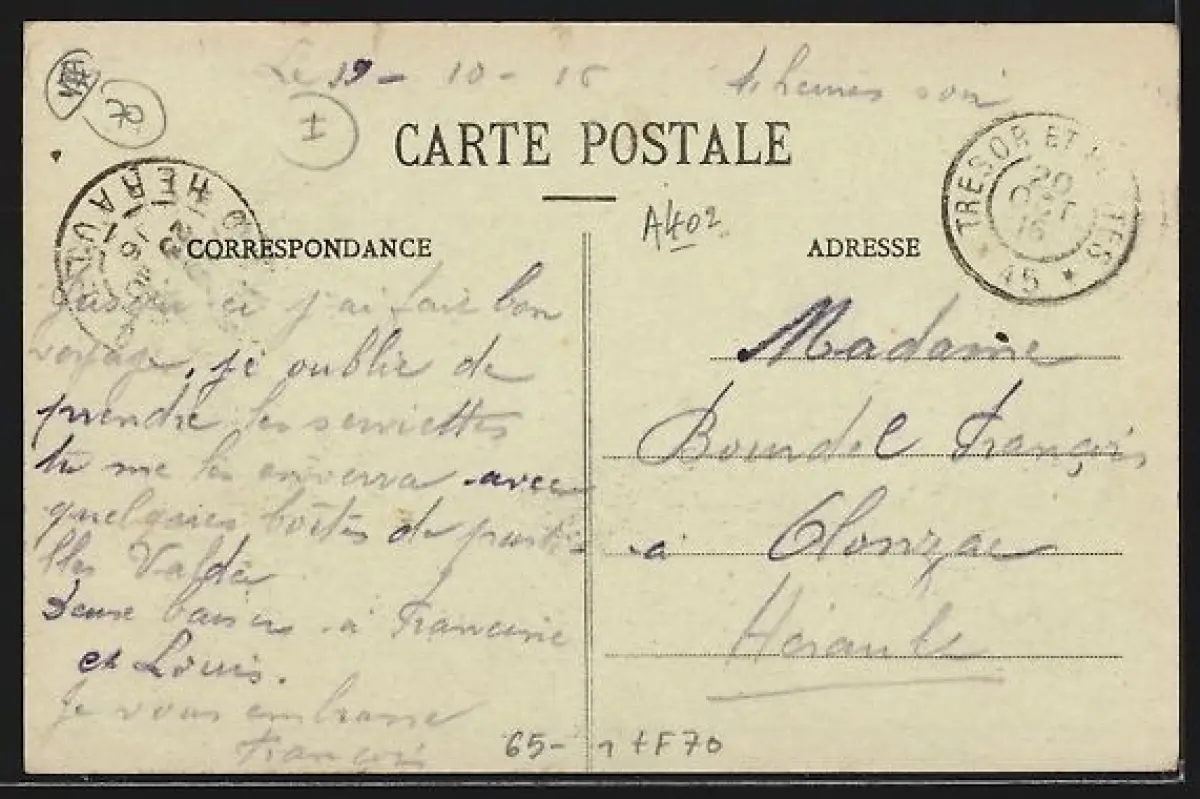 Le 19 - 10 - 16 heures soir
I
CARTE POSTALE
A402
TRESOR ET POSTES
20 OCT 16
* 45 *
HERAULT
CORRESPONDANCE
Jusqu ici j'ai fait bon
voyage, je oublie de
prendre les serviettes
tu me les enverra avec
quelques boîtes de pasti-
lles Valda
Deux baisers à Francine
et Louis.
Je vous embrasse
François
ADRESSE
Madame
Bourdel François
a Olonzac
Hérault
65- 1 +F70